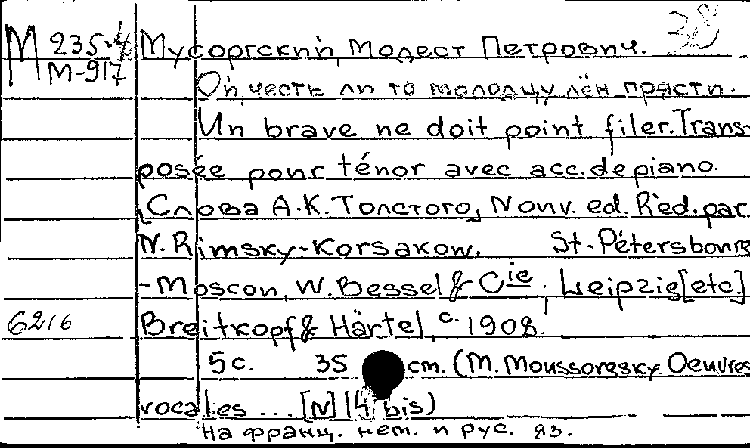 38
М 235-4 Мусоргский, Модест Петрович.
М-917
Ой, честь ли то молодцу лён прясти.
Un brave ne doit point filer. Trans-
posée pour ténor avec acc. de piano.
[Слова А.К. Толстого], Nouv. ed. Réd. par
N. Rimsky-Korsakow. St-Pétersbourg
-Moscou, W. Bessel & Cie; Leipzig [etc]
6216 Breitkopf & Härtel, c. 1908.
5 с. 35 cm. (M. Moussorgsky Oeuvres
vocales ... [N] 14 bis)
На франц. нем. и рус. яз.